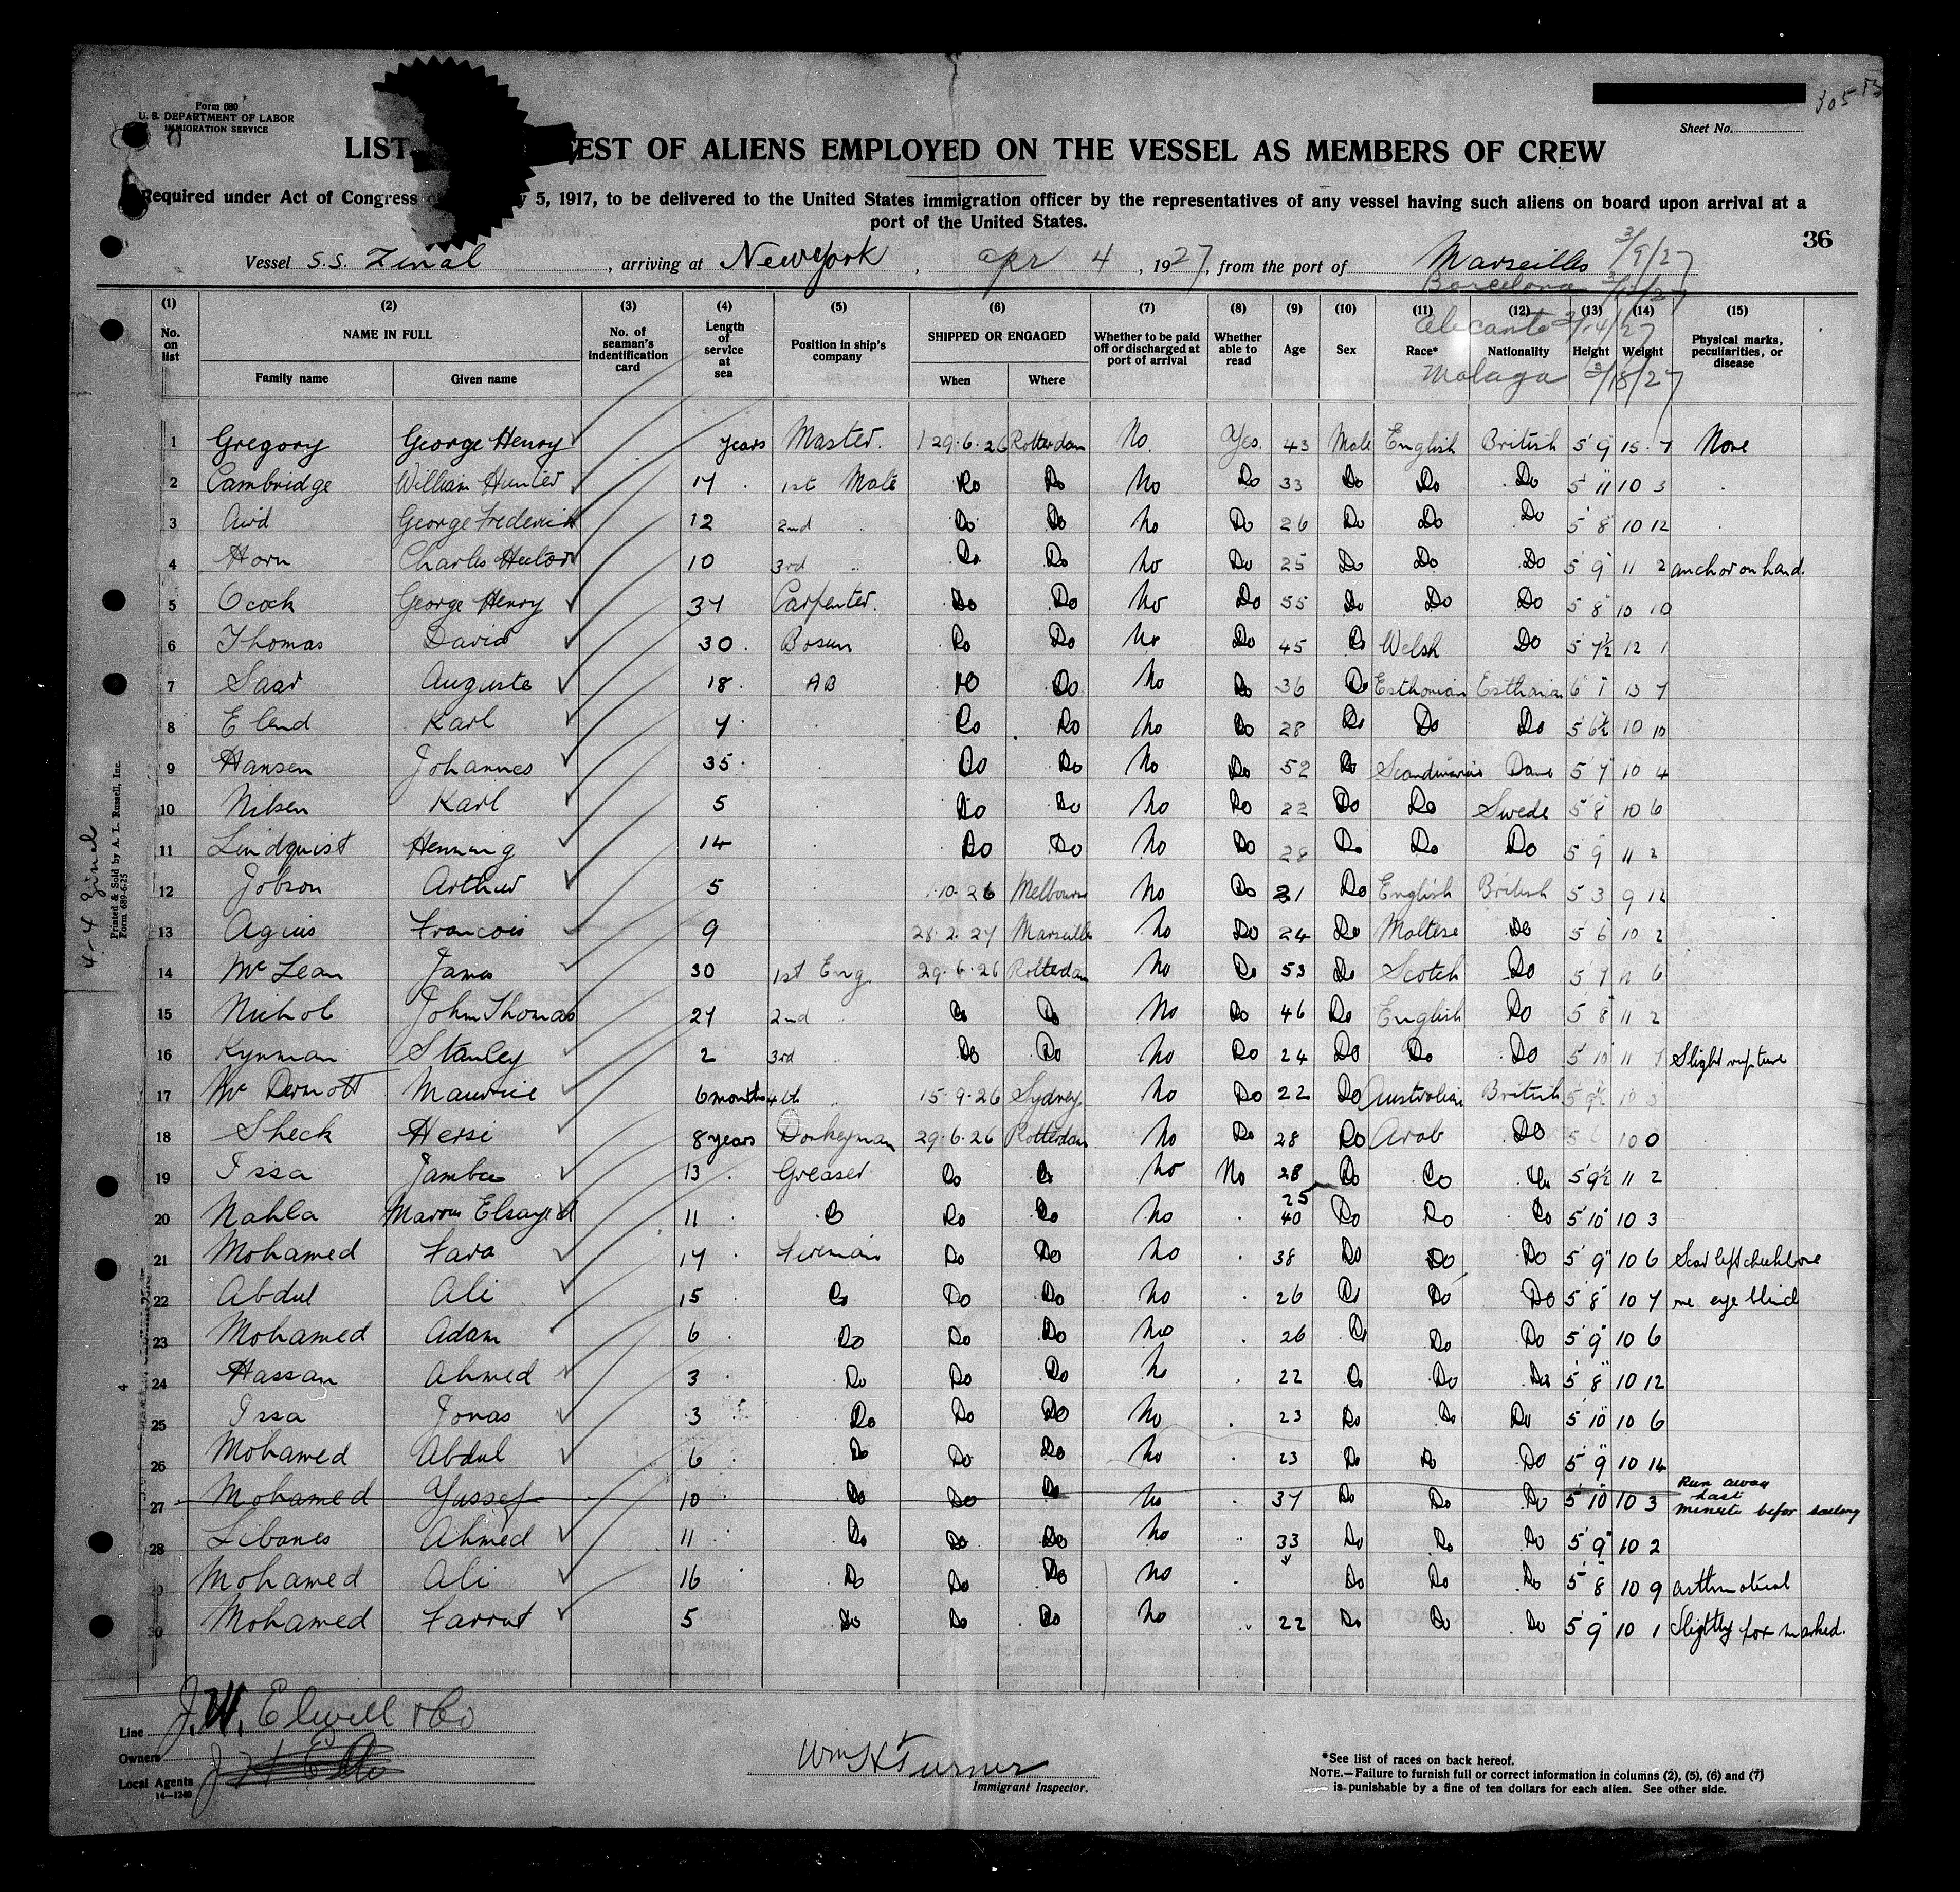 305
Form 680
U. S. DEPARTMENT OF LABOR
IMMIGRATION SERVICE
Sheet No.
LIST EST OF ALIENS EMPLOYED ON THE VESSEL AS MEMBERS OF CREW
Required under Act of Congress y 5, 1917, to be delivered to the United States immigration officer by the representatives of any vessel having such aliens on board upon arrival at a
port of the United States.
36
Vessel S.S. Zinal, arriving at New York, Apr 4, 1927, from the port of Marseilles 3/9/27
Barcelona
Alicante 3/14/27
Malaga 3/18/27
(1) (2) (3) (4) (5) (6) (7) (8) (9) (10) (11) (12) (13) (14) (15)
No. on list NAME IN FULL Family name Given name No. of seaman's indentification card Length of service at sea Position in ship's company SHIPPED OR ENGAGED When Where Whether to be paid off or discharged at port of arrival Whether able to read Age Sex Race* Nationality Height Weight Physical marks, peculiarities, or disease
1 Gregory George Henry years Master. 29.6.26 Rotterdam No. Yes. 43 Male English British 5 9 15 7 None
2 Cambridge William Hunter 14 1st Mate Do Do No Do 33 Do Do Do 5 11 10 3
3 George Frederick 12 2nd Do Do No Do 26 Do Do Do 5 8 10 12
4 Horn Charles Hector 10 3rd Do Do No Do 25 Do Do Do 5 9 11 2 anchor on hand.
5 Ocock George Henry 37 Carpenter. Do Do No Do 55 Do Do Do 5 8 10 10
6 Thomas David 30 Bosun Do Do No Do 45 Do Welsh Do 5 7½ 12 1
7 Saar Auguste 18 AB Do Do No Do 36 Do Esthonian Esthonian 6 1 13 7
8 Elend Karl 7 Do Do No Do 28 Do Do Do 5 6½ 10 10
9 Hansen Johannes 35 Do Do No Do 52 Do Scandinavian Dane 5 7 10 4
10 Nilsen Karl 5 Do Do No Do 22 Do Do Swede 5 8 10 6
11 Lindquist Henning 14 Do Do No Do 28 Do Do Do 5 9 11 2
12 Jobson Arthur 5 1.10.26 Melbourne No Do 21 Do English British 5 3 9 12
13 Agius Francois 9 28.2.27 Marseilles No Do 24 Do Maltese Do 5 6 10 2
14 McLean James 30 1st Eng 29.6.26 Rotterdam No Do 53 Do Scotch Do 5 7 11 6
15 Nichol John Thomas 27 2nd Do Do No Do 46 Do English Do 5 8 11 2
16 Kynman Stanley 2 3rd Do Do No Do 24 Do Do Do 5 10 11 7 Slight rupture
17 McDermott Maurice 6 months 4th 15.9.26 Sydney No Do 22 Do Australian British 5 9½ 10
18 Sheck Hersi 8 years Donkeyman 29.6.26 Rotterdam No Do 28 Do Arab Do 5 10 0
19 Issa Jamba 13 Greaser Do Do No No 28 Do Do Do 5 9½ 11 2
25
20 Nahla Marous Elsayed 11 Do Do Do No 40 Do Do Do 5 10 10 3
21 Mohamed Fara 17 Fireman Do Do No 38 Do Do Do 5 9 10 6 Scar left cheekbone
22 Abdul Ali 15 Do Do Do No 26 Do Do Do 5 8 10 7 one eye blind
23 Mohamed Adam 6 Do Do Do No 26 Do Do Do 5 9 10 6
24 Hassan Ahmed 3 Do Do Do No 22 Do Do Do 5 8 10 12
25 Issa Jonas 3 Do Do Do No 23 Do Do Do 5 10 10 6
26 Mohamed Abdul 6 Do Do Do No 23 Do Do Do 5 9 10 14
27 Mohamed Yussef 10 Do Do Do No 37 Do Do Do 5 10 10 3 Run away last minute befor sailing
28 Libanes Ahmed 11 Do Do Do No 33 Do Do Do 5 9 10 2
29 Mohamed Ali 16 Do Do Do No Do Do Do 5 8 10 9 asthmatical
30 Mohamed Farrut 5 Do Do Do No 22 Do Do Do 5 9 10 1 Slightly pox marked.
4-4 Zinal
Printed & Sold by A. L. Russell, Inc.
Form 689-6-25
4
Line J.W. Elwell & Co
Owners
Local Agents
14—1240
Wm K Turner
Immigrant Inspector.
*See list of races on back hereof.
NOTE.—Failure to furnish full or correct information in columns (2), (5), (6) and (7)
is punishable by a fine of ten dollars for each alien. See other side.